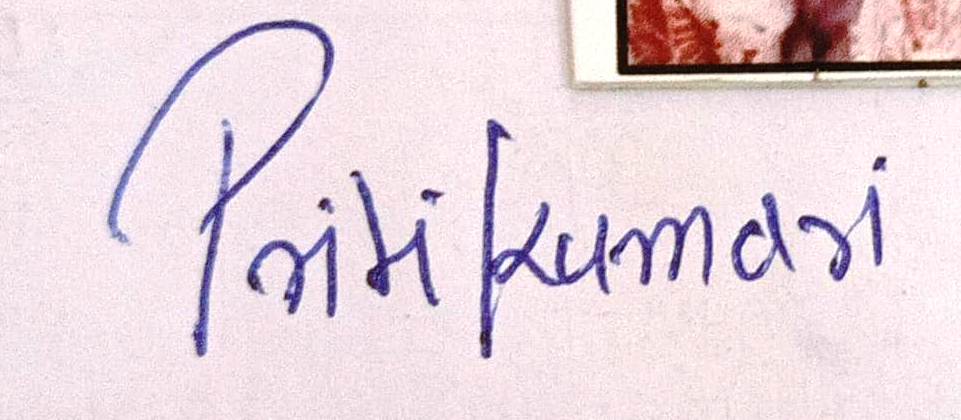 Priti kumari